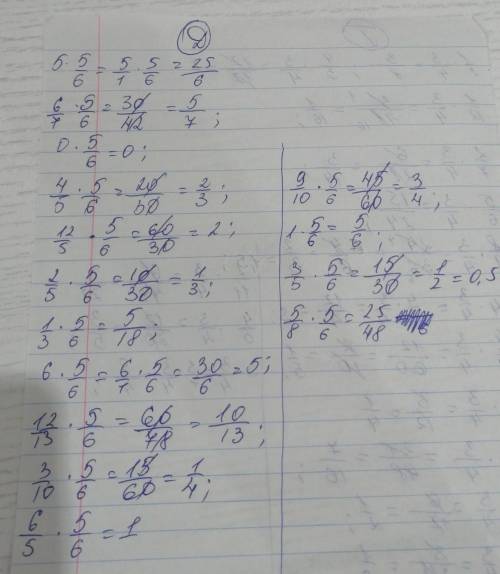 Д
5 · 5/6 = 5/1 · 5/6 = 25/6
6/7 · 5/6 = 30/42 = 5/7;
0 · 5/6 = 0;
4/5 · 5/6 = 20/30 = 2/3;
12/5 · 5/6 = 60/30 = 2;
2/5 · 5/6 = 10/30 = 1/3;
1/3 · 5/6 = 5/18;
6 · 5/6 = 6/1 · 5/6 = 30/6 = 5;
12/13 · 5/6 = 60/78 = 10/13;
3/10 · 5/6 = 15/60 = 1/4;
6/5 · 5/6 = 1
9/10 · 5/6 = 45/60 = 3/4;
1 · 5/6 = 5/6;
3/5 · 5/6 = 15/30 = 1/2 = 0,5
5/8 · 5/6 = 25/48